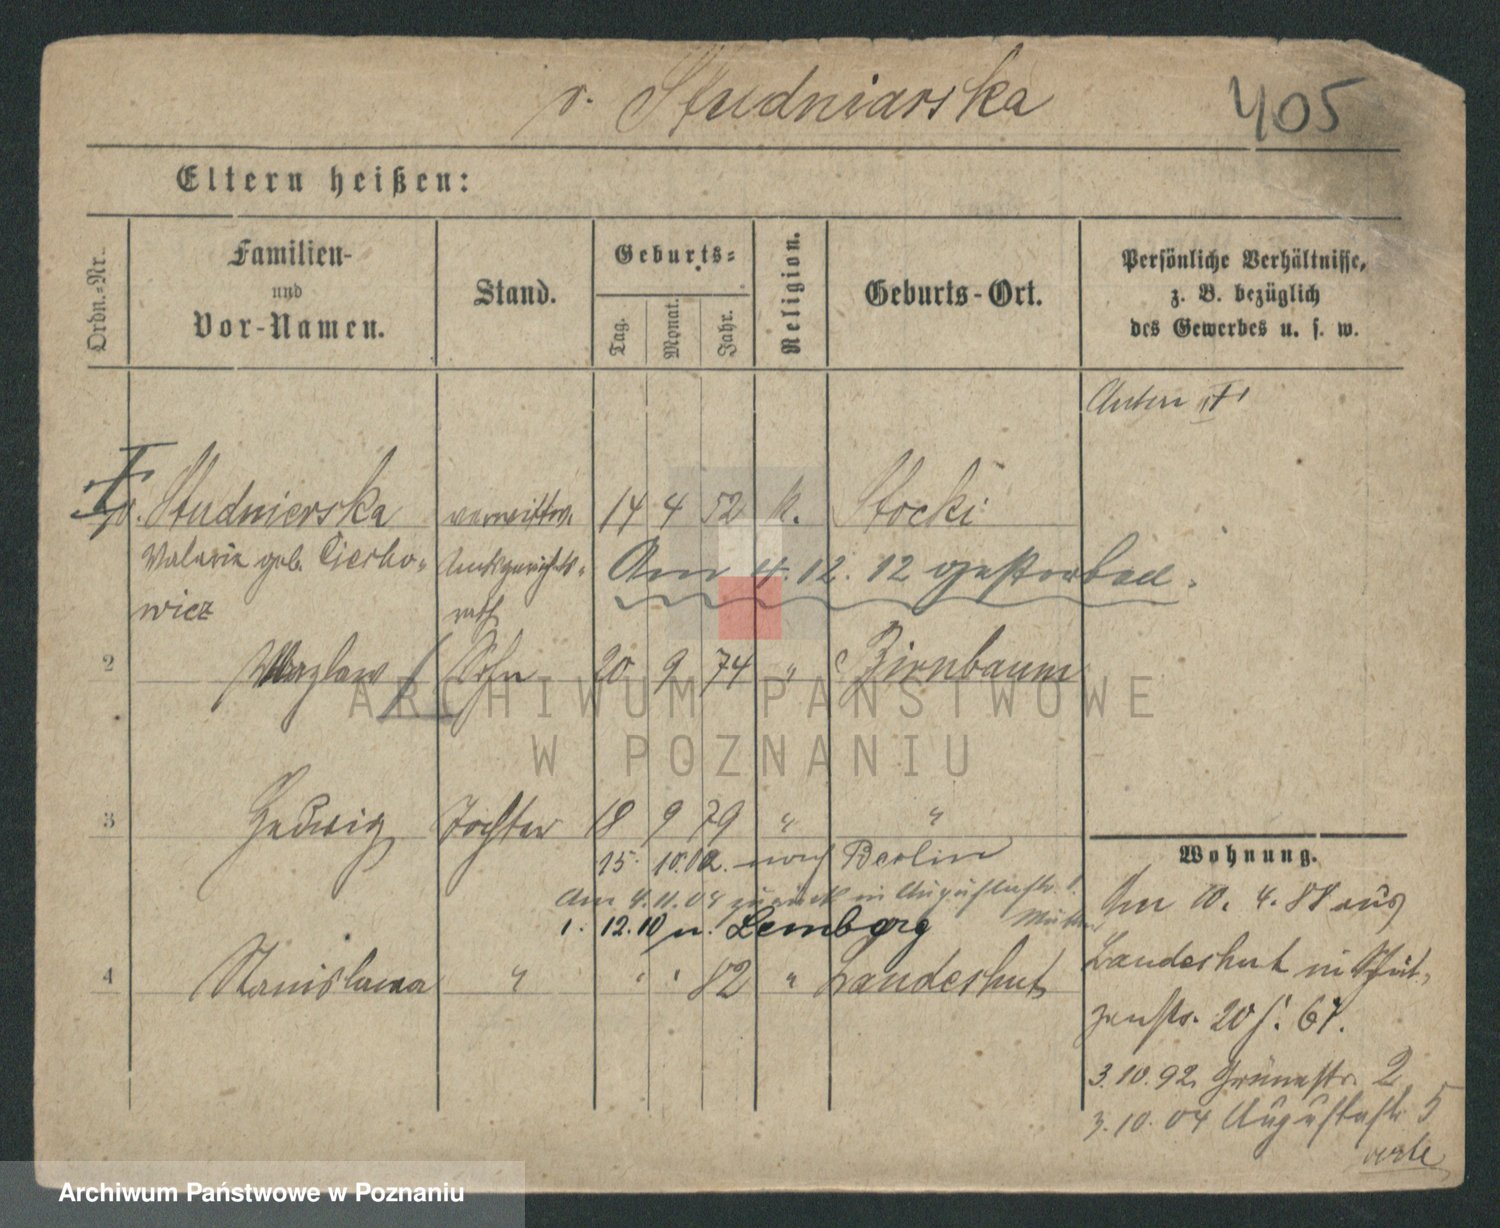 v. Studniarska
405
Eltern heißen:
Ordn.-Nr.
Familien-
und
Vor-Namen.
Stand.
Geburts-
Tag.
Monat.
Jahr.
Religion.
Geburts-Ort.
Persönliche Verhältnisse,
z. B. bezüglich
des Gewerbes u. s. w.
v. Studnierska verwittw. 14 4 52 k. Stocki
Valerie geb. Cierko-
wicz
Amtsgerichts-
rath
Am 4.12.12 gestorben.
2 Wazlaw Sohn 20 9 74 " Birnbaum
ARCHIWUM PAŃSTWOWE
W POZNANIU
3 Hedwig Tochter 18 9 79 " "
15. 10.02. nach Berlin
Am 4.11.04 zurück in Augustastr.
1. 12.10 n. Lemberg
4 Stanislawa " " " 82 " Landeshut
Wohnung.
Am 10. 4. 88 aus
Landeshut in Schüt-
zenstr. 20 f. 67.
3.10.92. Grünestr. 2
3.10.04 Augustastr 5
verte
Archiwum Państwowe w Poznaniu